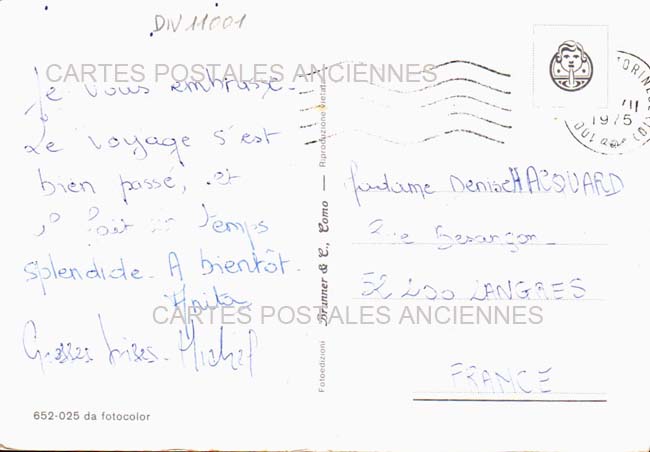 DIV 11001
CARTES POSTALES ANCIENNES
Je vous embrasse.
Le voyage s'est
bien passé, et
il fait un temps
splendide. A bientôt.
Anita
Grosses bises. Michel
652-025 da fotocolor
Fotoedizioni Brunner & C., Como — Riproduzione vietata
TORINO
1975
Madame Denise HACQUARD
Rue Besançon
52 200 LANGRES
FRANCE
CARTES POSTALES ANCIENNES